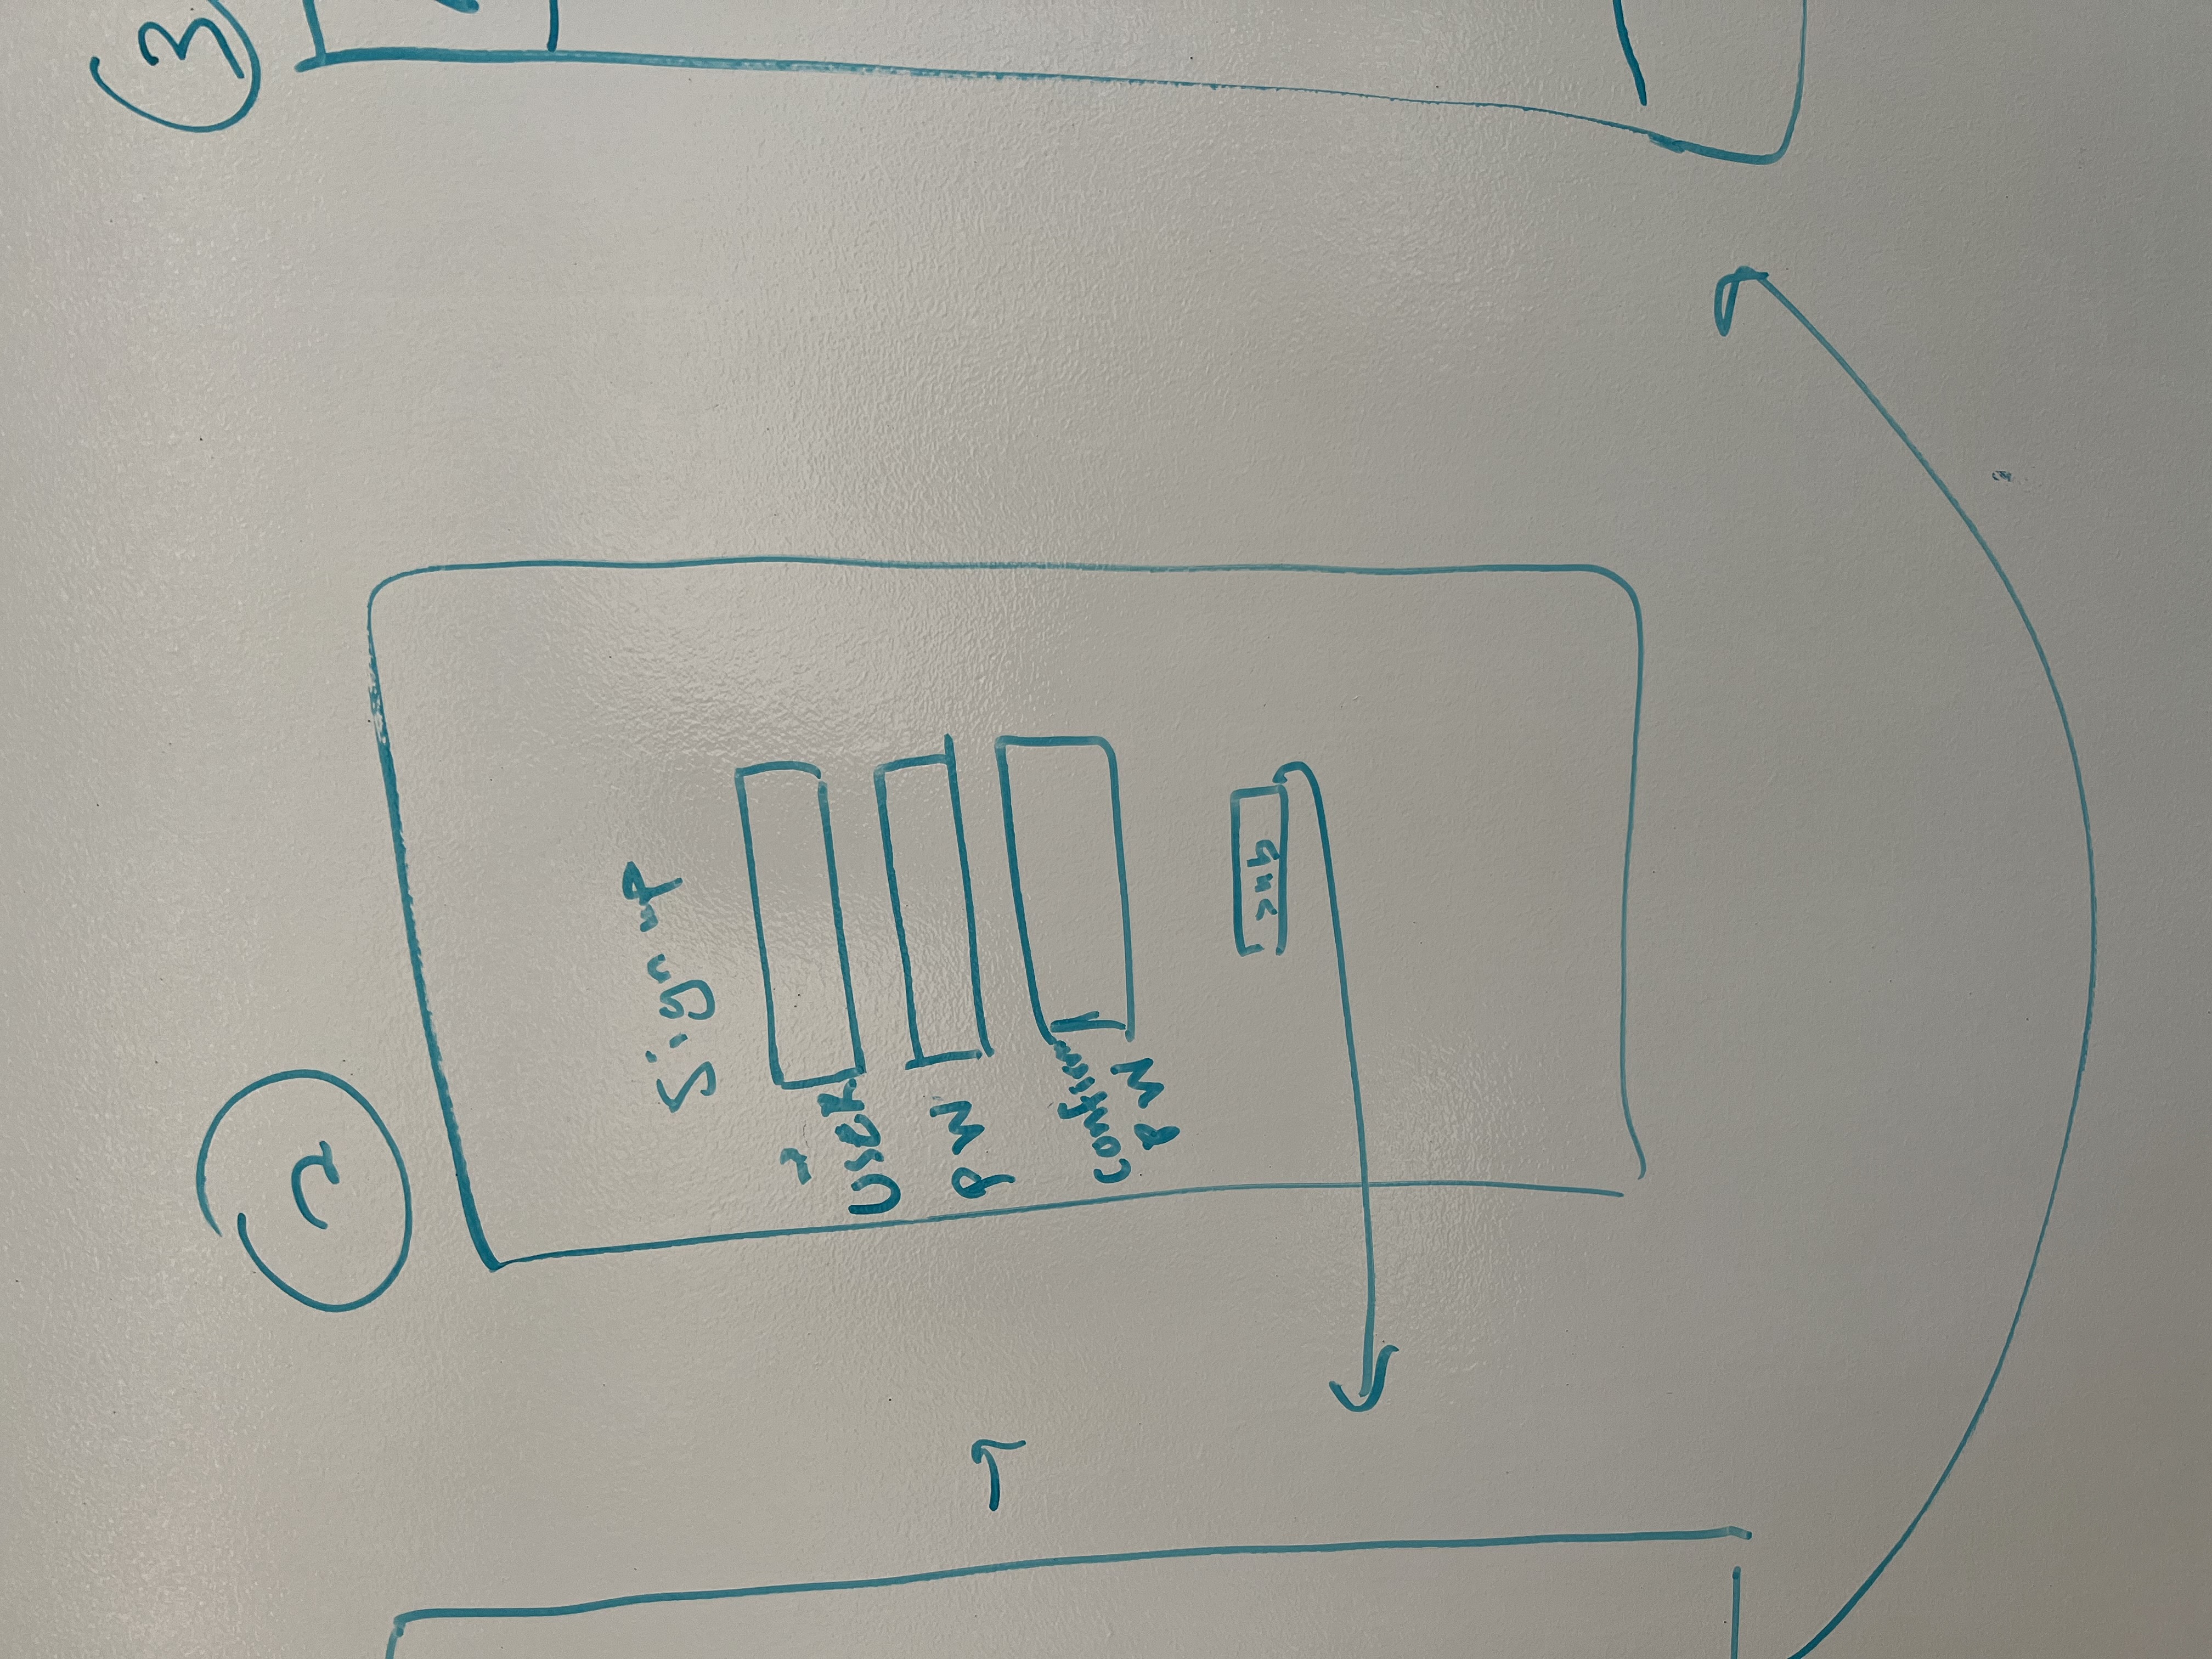 2
3
Sign up
User
PW
confirm
PW
sub